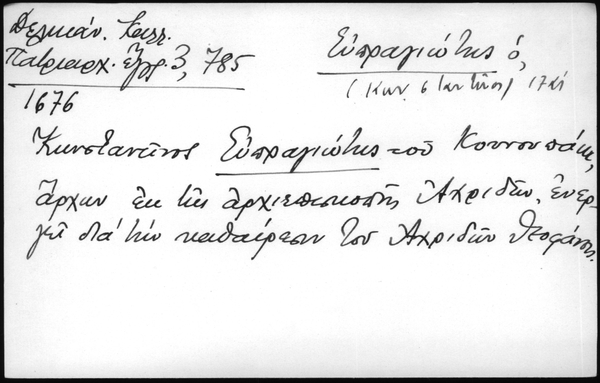 Δελικάν. Καλλ.
Πατριαρχ. Ἔγγρ. 3, 785
Εὐπραγιώτης ὁ,
(Κωνσταντῖνος) 17αι
1676
Κωνσταντῖνος Εὐπραγιώτης τοῦ Κουνουπάκη,
ἄρχων ἐκ τῆς ἀρχιεπισκοπῆς Ἀχριδῶν, ἐνερ-
γεῖ διὰ τὴν καθαίρεσιν τοῦ Ἀχριδῶν Θεοφάνους.